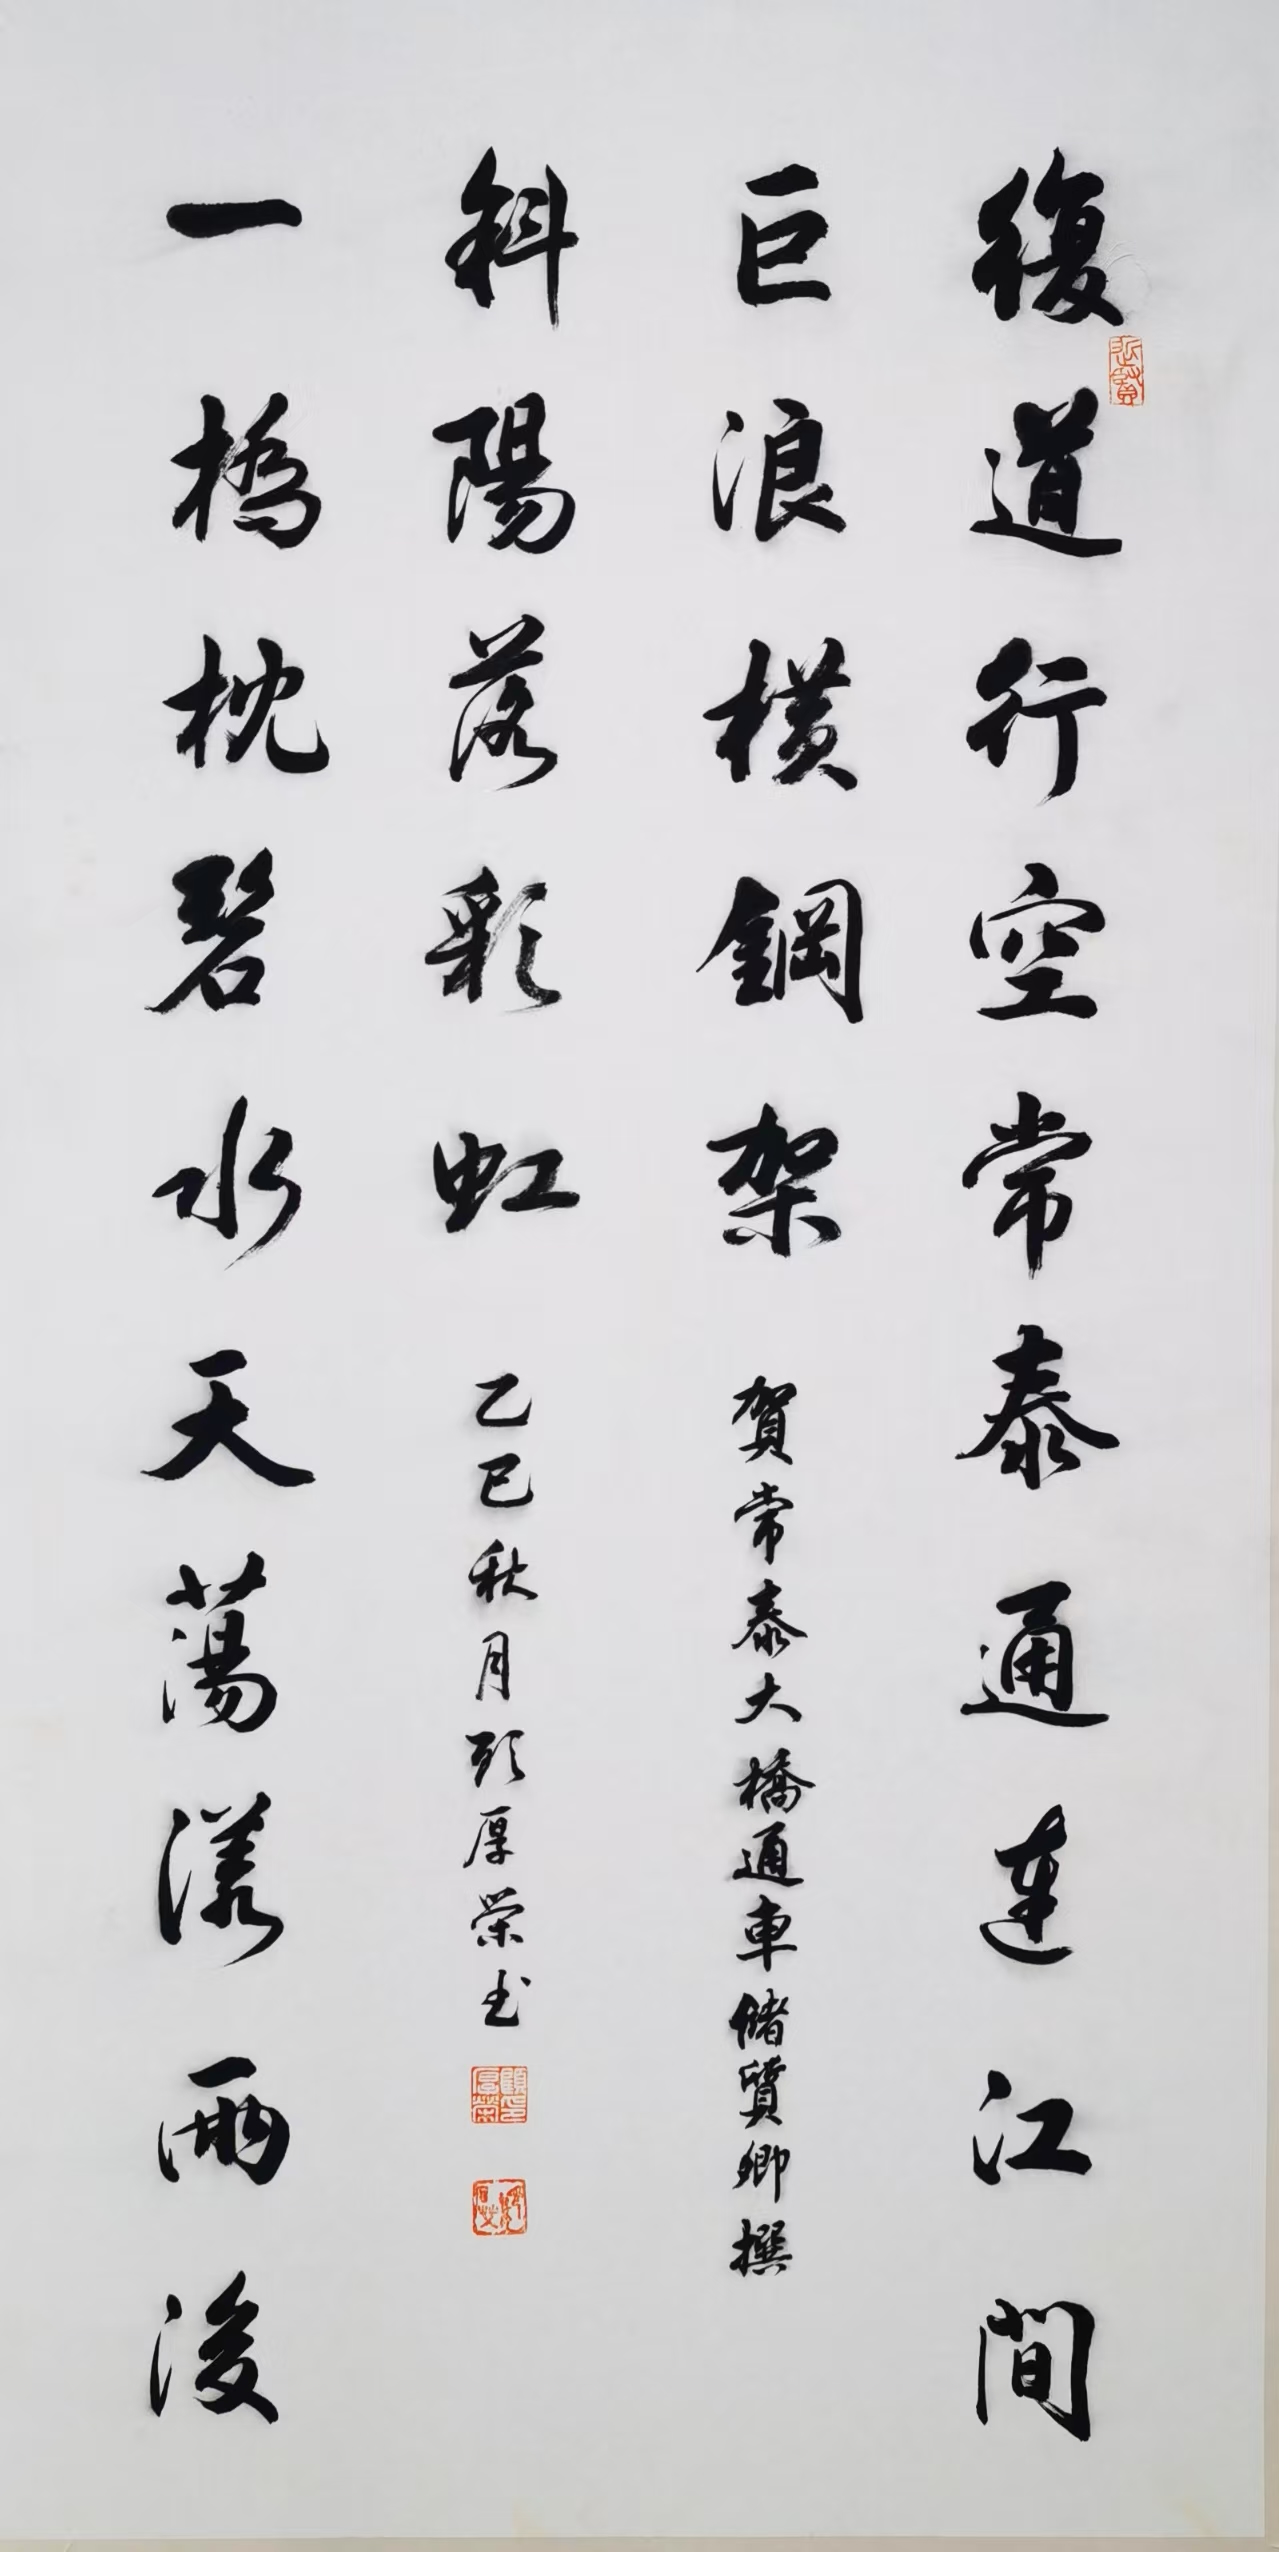 復道行空常泰通達江間
巨浪橫鋼架
賀常泰大橋通車儲質卿撰
一橋枕碧水天蕩漾雨後
斜陽落彩虹
乙巳秋月顧厚榮書
顧厚榮印